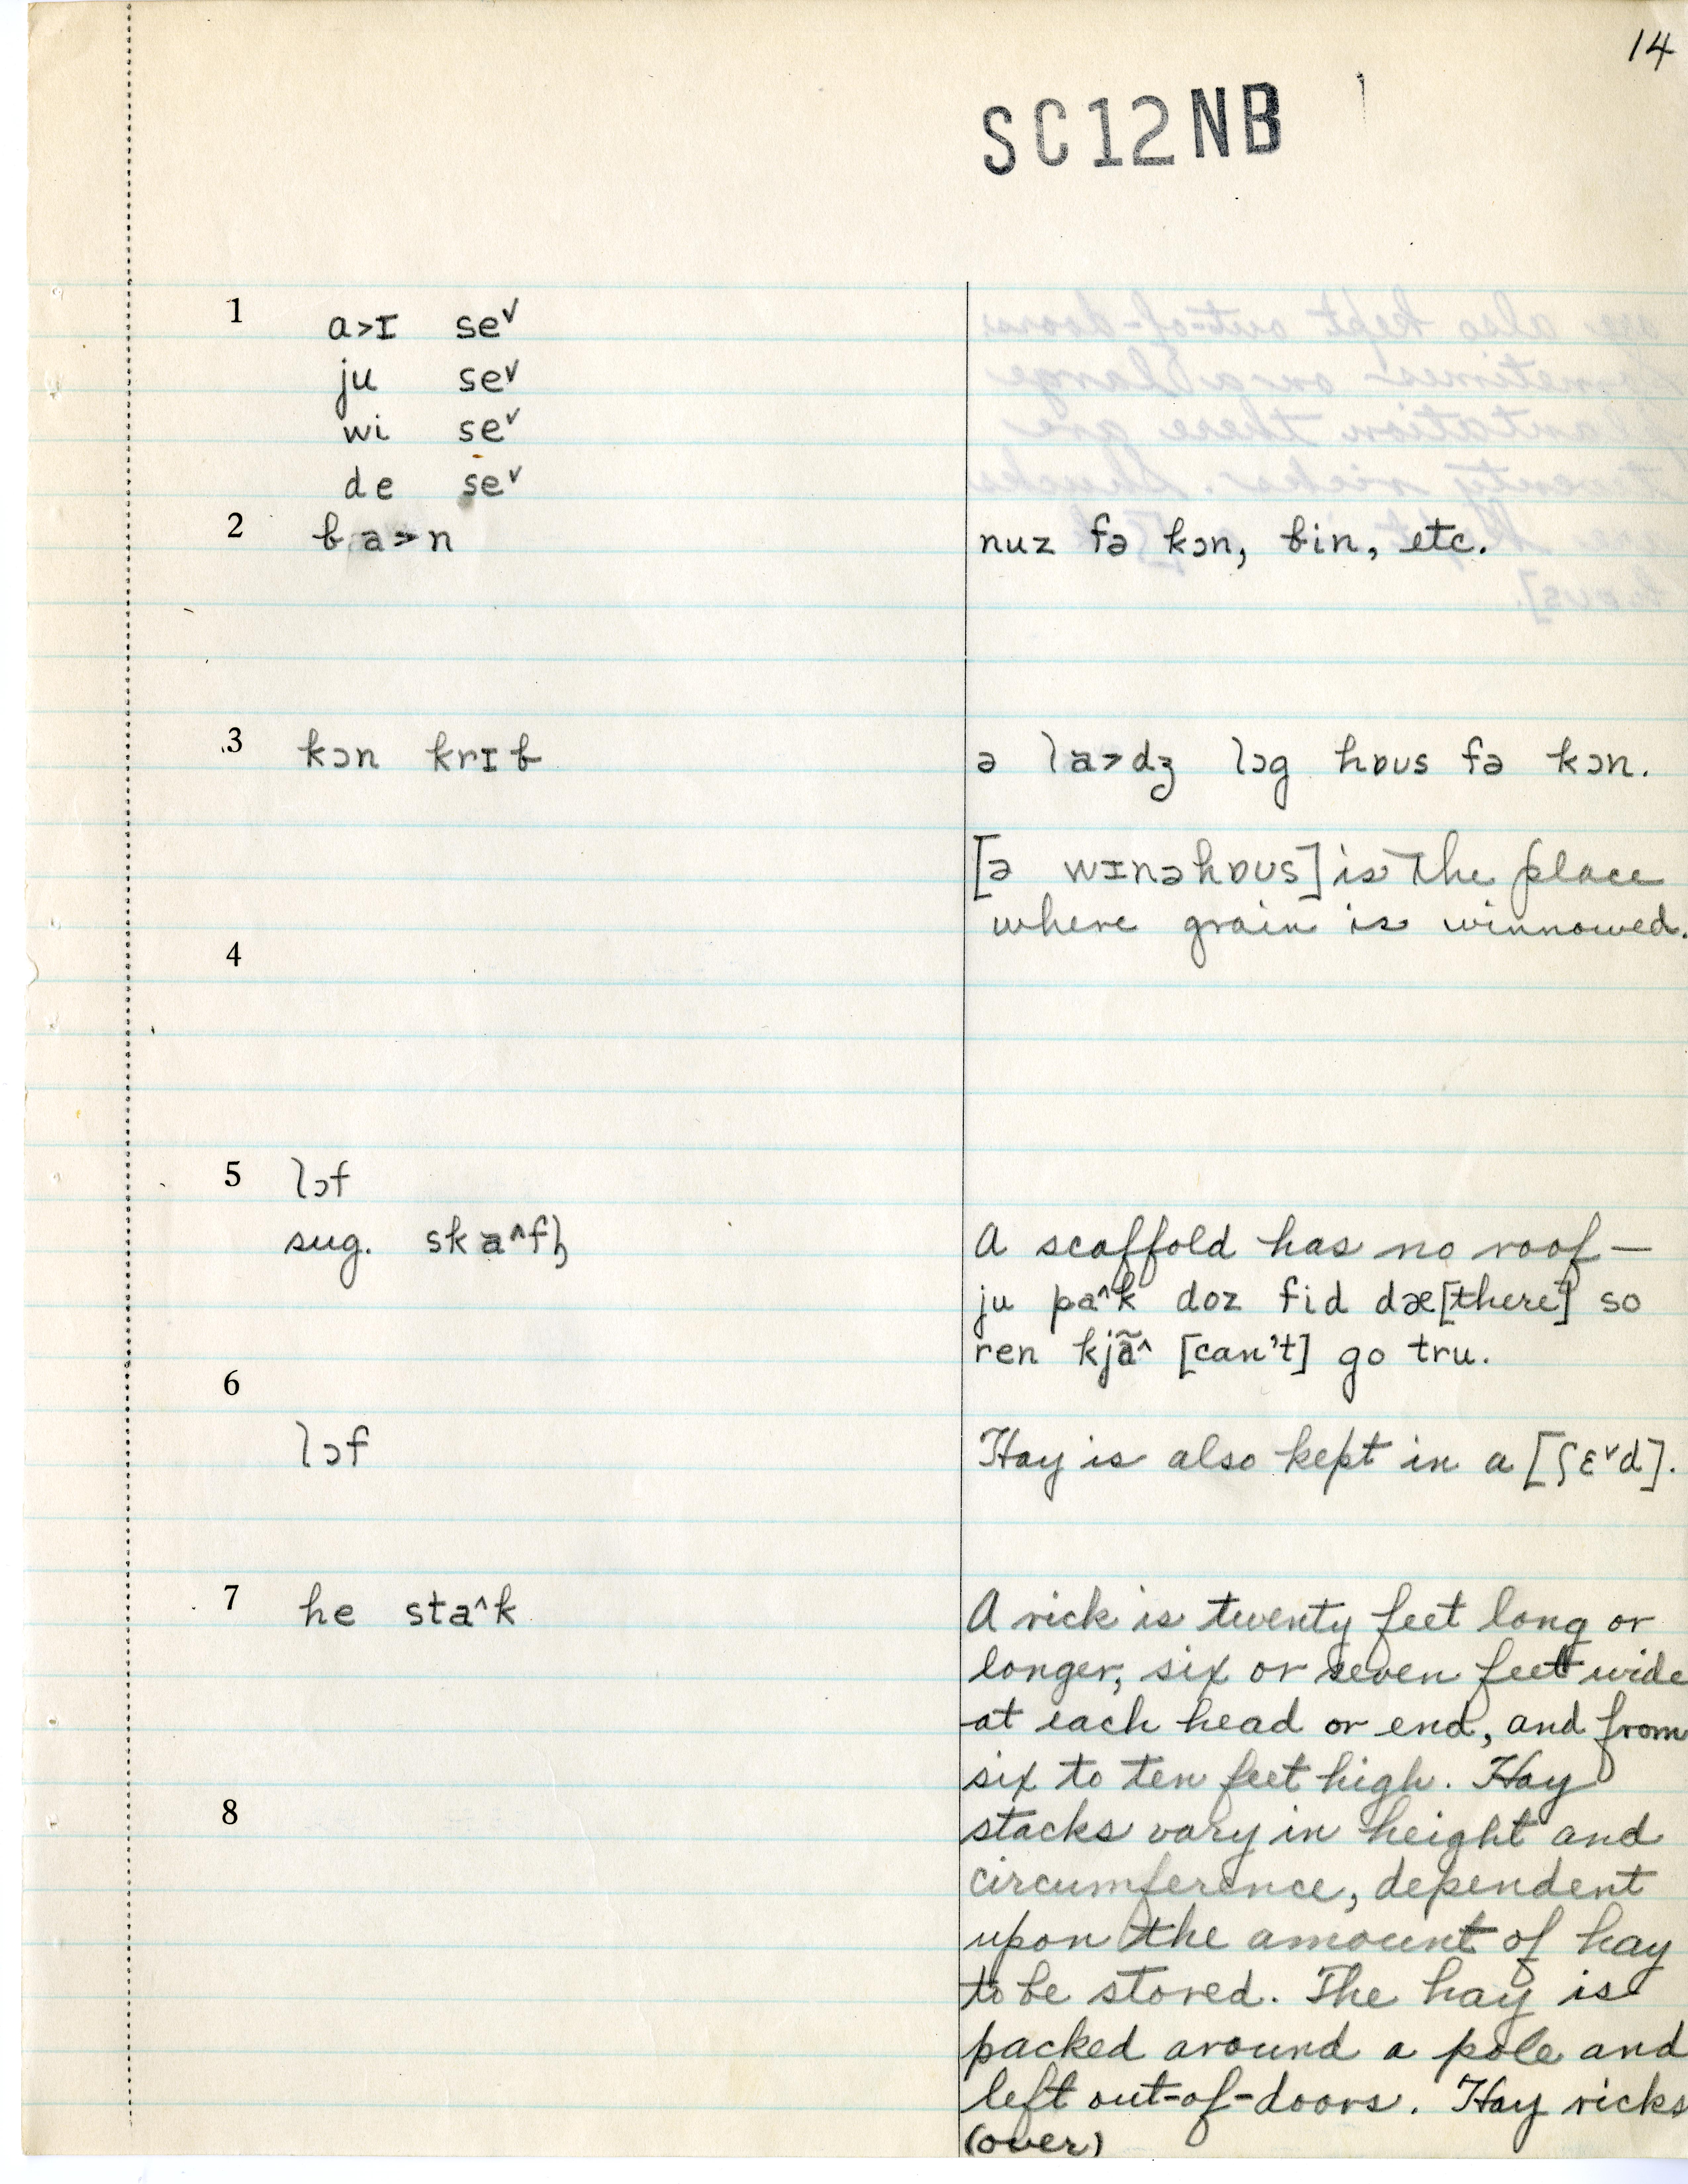 14
SC12NB
1 a>ɪ se˅
ju se˅
wi se˅
de se˅
2 ɓa>n
nuz fə kɔn, ɓin, etc.
3 kɔn krɪɓ
ə la>dʒ lɔg hɒʊs fə kɔn.
[ə wɪnəhɒʊs] is the place
where grain is winnowed.
4
5 lɔf
sug. ska^fl̩
A scaffold has no roof—
ju pa^k doz fid dæ [there] so
ren kjã^ [can't] go tru.
6
lɔf
Hay is also kept in a [ʃɛ˅d].
7 he sta^k
A rick is twenty feet long or
longer, six or seven feet wide
at each head or end, and from
six to ten feet high. Hay
8
stacks vary in height and
circumference, dependent
upon the amount of hay
to be stored. The hay is
packed around a pole and
left out-of-doors. Hay ricks
(over)